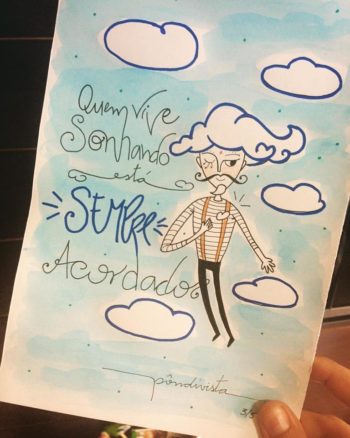 Quem vive
Sonhando
está
SEMPRE
Acordado
pôndivista